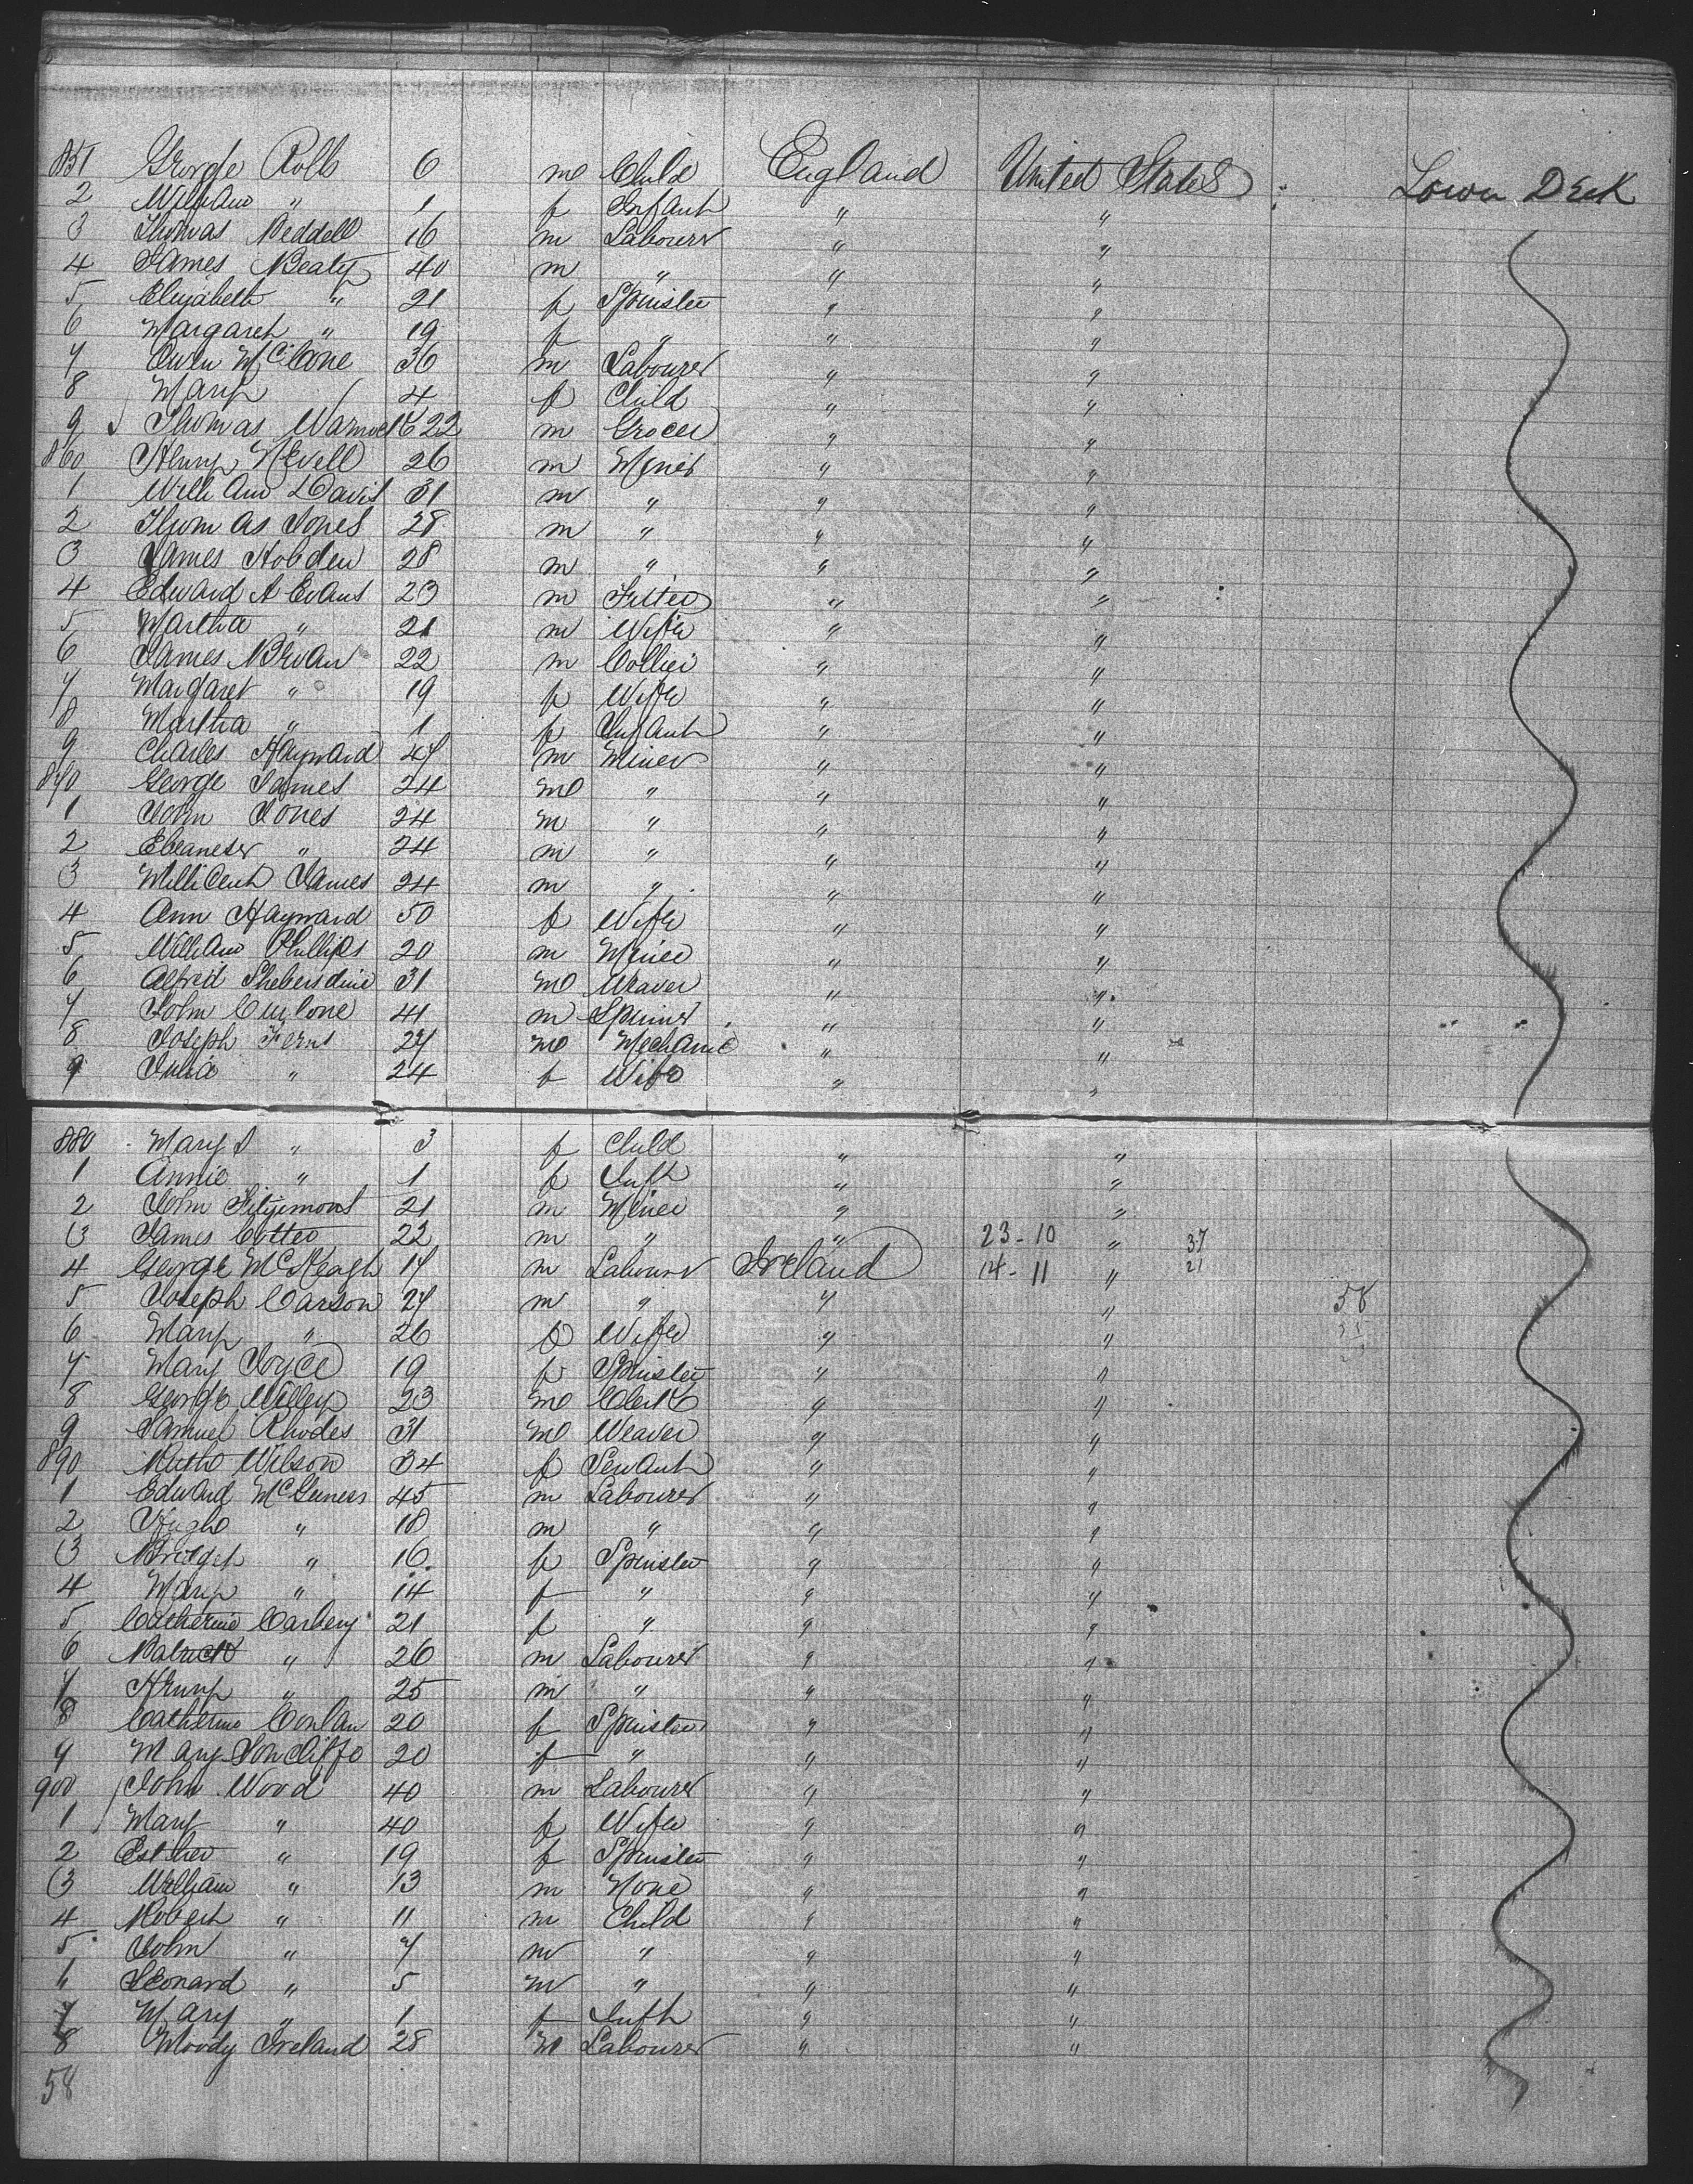 851 George Rolls 6 m Child England United States : Lower Deck
2 William " 1 f Infant " "
3 Thomas Beddell 16 m Labourer " "
4 James Beaty 40 m " " "
5 Elizabeth " 21 f Spinster " "
6 Margaret " 19 f " " "
7 Owen McCone 36 m Labourer " "
8 Mary 4 f Child " "
9 Thomas Warnock 22 m Grocer " "
860 Henry Nevell 26 m Miner " "
1 William Davis 31 m " " "
2 Thomas Jones 28 m " " "
3 James Hobden 28 m " " "
4 Edward A Evans 23 m Fitter " "
5 Martha " 21 m Wife " "
6 James Bevan 22 m Collier " "
7 Margaret " 19 f Wife " "
8 Martha " 1 f Infant " "
9 Charles Hayward 47 m Miner " "
870 George James 24 m " " "
1 John Jones 24 m " " "
2 Ebeaneser " 24 m " " "
3 Millicent James 24 m " " "
4 Ann Hayward 50 f Wife " "
5 William Phillips 20 m Miner " "
6 Alfred 31 m Weaver " "
7 John 41 m Spinner " "
8 Joseph Ferns 27 m Mechanic " "
9 Julia " 24 f Wife " "
880 Mary " 3 f Child " "
1 Annie " 1 f Inft " "
2 John Fitzimons 21 m Miner " "
3 James Cotter 22 m " " 23-10 " 37
4 George McKeagh 17 m Labourer Ireland 14-11 " 21
5 Joseph Carson 27 m " " " 58
6 Mary " 26 f Wife " "
7 Mary Joyce 19 f Spinster " "
8 George Willey 23 m Clerk " "
9 Samuel Rhodes 31 m Weaver " "
890 Ruth Wilson 34 f Servant " "
1 Edward McGuness 45 m Labourer " "
2 Hugh " 18 m " " "
3 Bridget " 16 f Spinster " "
4 Mary " 14 f " " "
5 Catherine Carbery 21 f " " "
6 Patrick " 26 m Labourer " "
7 Henry " 25 m " " "
8 Catherine Conlan 20 f Spinster " "
9 Mary 20 f " " "
900 John Wood 40 m Labourer " "
1 Mary " 40 f Wife " "
2 Esther " 19 f Spinster " "
3 William " 13 m None " "
4 Robert " 11 m Child " "
5 John " 7 m " " "
6 Leonard " 5 m " " "
7 Mary " 1 f Inft " "
8 Moody Ireland 28 m Labourer " "
58